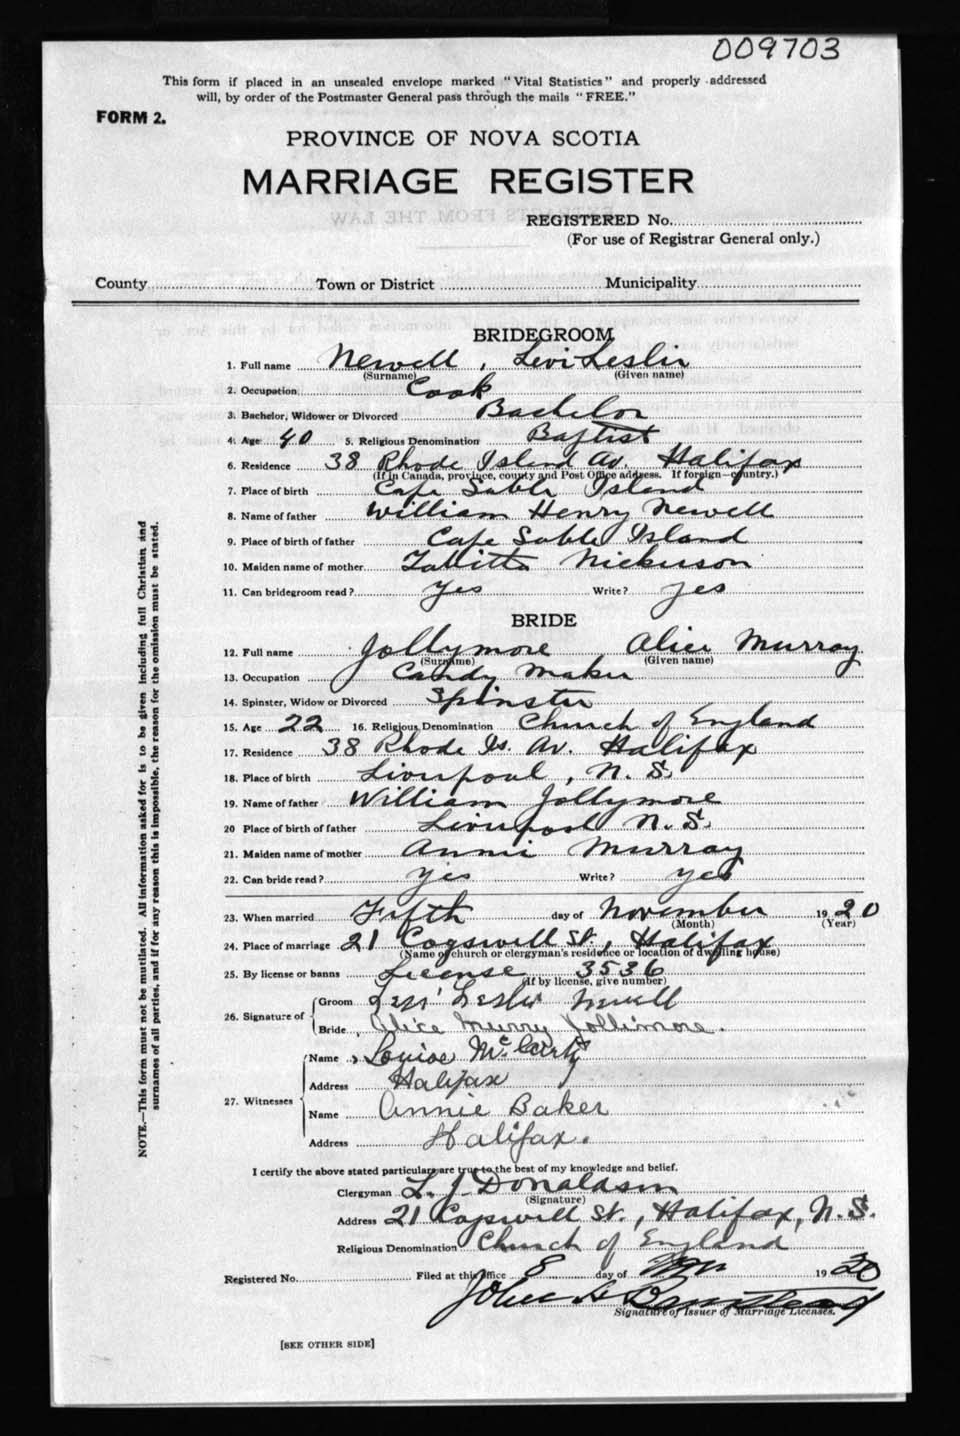 009703
This form if placed in an unsealed envelope marked "Vital Statistics" and properly addressed
will, by order of the Postmaster General pass through the mails "FREE."
FORM 2.
PROVINCE OF NOVA SCOTIA
MARRIAGE REGISTER
EXTRACTS FROM THE LAW
REGISTERED No.
(For use of Registrar General only.)
County Town or District Municipality
BRIDEGROOM
1. Full name Newell, Levi Leslie
(Surname) (Given name)
2. Occupation Cook
3. Bachelor, Widower or Divorced Bachelor
4. Age 40 5. Religious Denomination Baptist
6. Residence 38 Rhode Island Av. Halifax
(If in Canada, province, county and Post Office address. If foreign—country.)
7. Place of birth Cape Sable Island
8. Name of father William Henry Newell
9. Place of birth of father Cape Sable Island
10. Maiden name of mother Tabitta Nickerson
11. Can bridegroom read? Yes Write? yes
BRIDE
12. Full name Jollymore Alice Murray
(Surname) (Given name)
13. Occupation Candy Maker
14. Spinster, Widow or Divorced Spinster
15. Age 22 16. Religious Denomination Church of England
17. Residence 38 Rhode Is. Av. Halifax
18. Place of birth Liverpool, N. S.
19. Name of father William Jollymore
20 Place of birth of father Liverpool N. S.
21. Maiden name of mother Annie Murray
22. Can bride read? yes Write? yes
23. When married Fifth day of November 1920
(Month) (Year)
24. Place of marriage 21 Cogswell St., Halifax
(Name of church or clergyman's residence or location of dwelling house)
25. By license or banns License 3536
(If by license, give number)
26. Signature of Groom Leslie Newell
Bride Alice Murry Jollimore.
27. Witnesses Name Louise McCarty
Address Halifax
Name Annie Baker
Address Halifax.
I certify the above stated particulars are true to the best of my knowledge and belief.
Clergyman L. J. Donaldson
(Signature)
Address 21 Cogswell St., Halifax, N. S.
Religious Denomination Church of England
Registered No. Filed at this office 8 day of Nov 1920
John
Signature of Issuer of Marriage Licenses.
[SEE OTHER SIDE]
NOTE.—This form must not be mutilated. All information asked for is to be given including full Christian and
surnames of all parties, and if for any reason this is impossible, the reason for the omission must be stated.